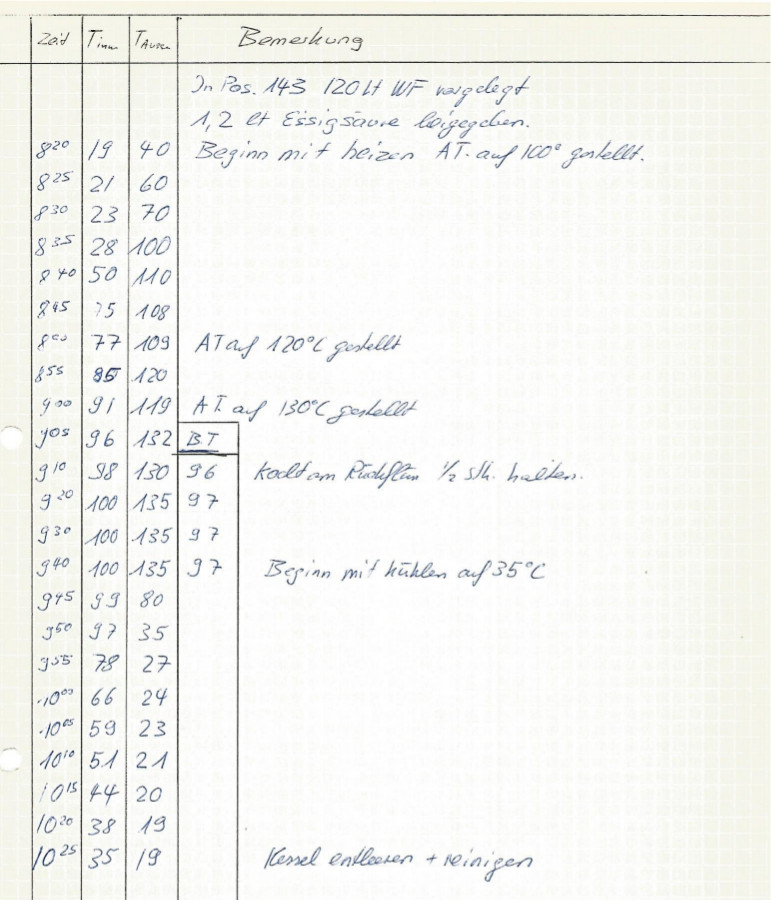 Zeit Tinn Taussen Bemerkung
In Pos. 143 120 lt WF vorgelegt
1,2 lt Essigsäure beigegeben.
8²⁰ 19 40 Beginn mit heizen AT. auf 100° gestellt.
8²⁵ 21 60
8³⁰ 23 70
8³⁵ 28 100
8⁴⁰ 50 110
8⁴⁵ 75 108
8⁵⁰ 77 109 AT auf 120°C gestellt
8⁵⁵ 85 120
9⁰⁰ 91 119 AT. auf 130°C gestellt
9⁰⁵ 96 132 BT
9¹⁰ 98 130 96 Kocht am Rückfluss ½ Std. halten.
9²⁰ 100 135 97
9³⁰ 100 135 97
9⁴⁰ 100 135 97 Beginn mit kühlen auf 35°C
9⁴⁵ 99 80
9⁵⁰ 97 35
9⁵⁵ 78 27
10⁰⁰ 66 24
10⁰⁵ 59 23
10¹⁰ 51 21
10¹⁵ 44 20
10²⁰ 38 19
10²⁵ 35 19 Kessel entleeren + reinigen